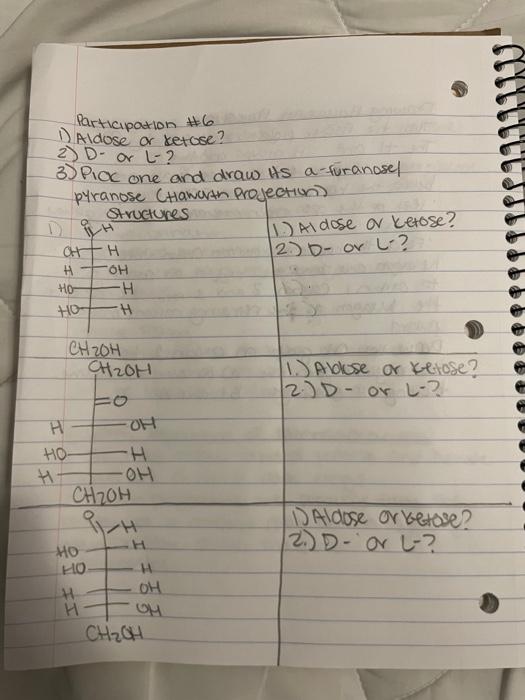 Participation #6
1) Aldose or ketose?
2) D- or L-?
3) Pick one and draw its a-furanose/
pyranose (Haworth Projection)
Structures
1)
O
H
OH H
H OH
HO H
HO H
CH2OH
1.) Aldose or ketose?
2.) D- or L-?
CH2OH
=O
H OH
HO H
H OH
CH2OH
1.) Aldose or ketose?
2.) D- or L-?
O
H
HO H
HO H
H OH
H OH
CH2OH
1) Aldose or ketose?
2.) D- or L-?